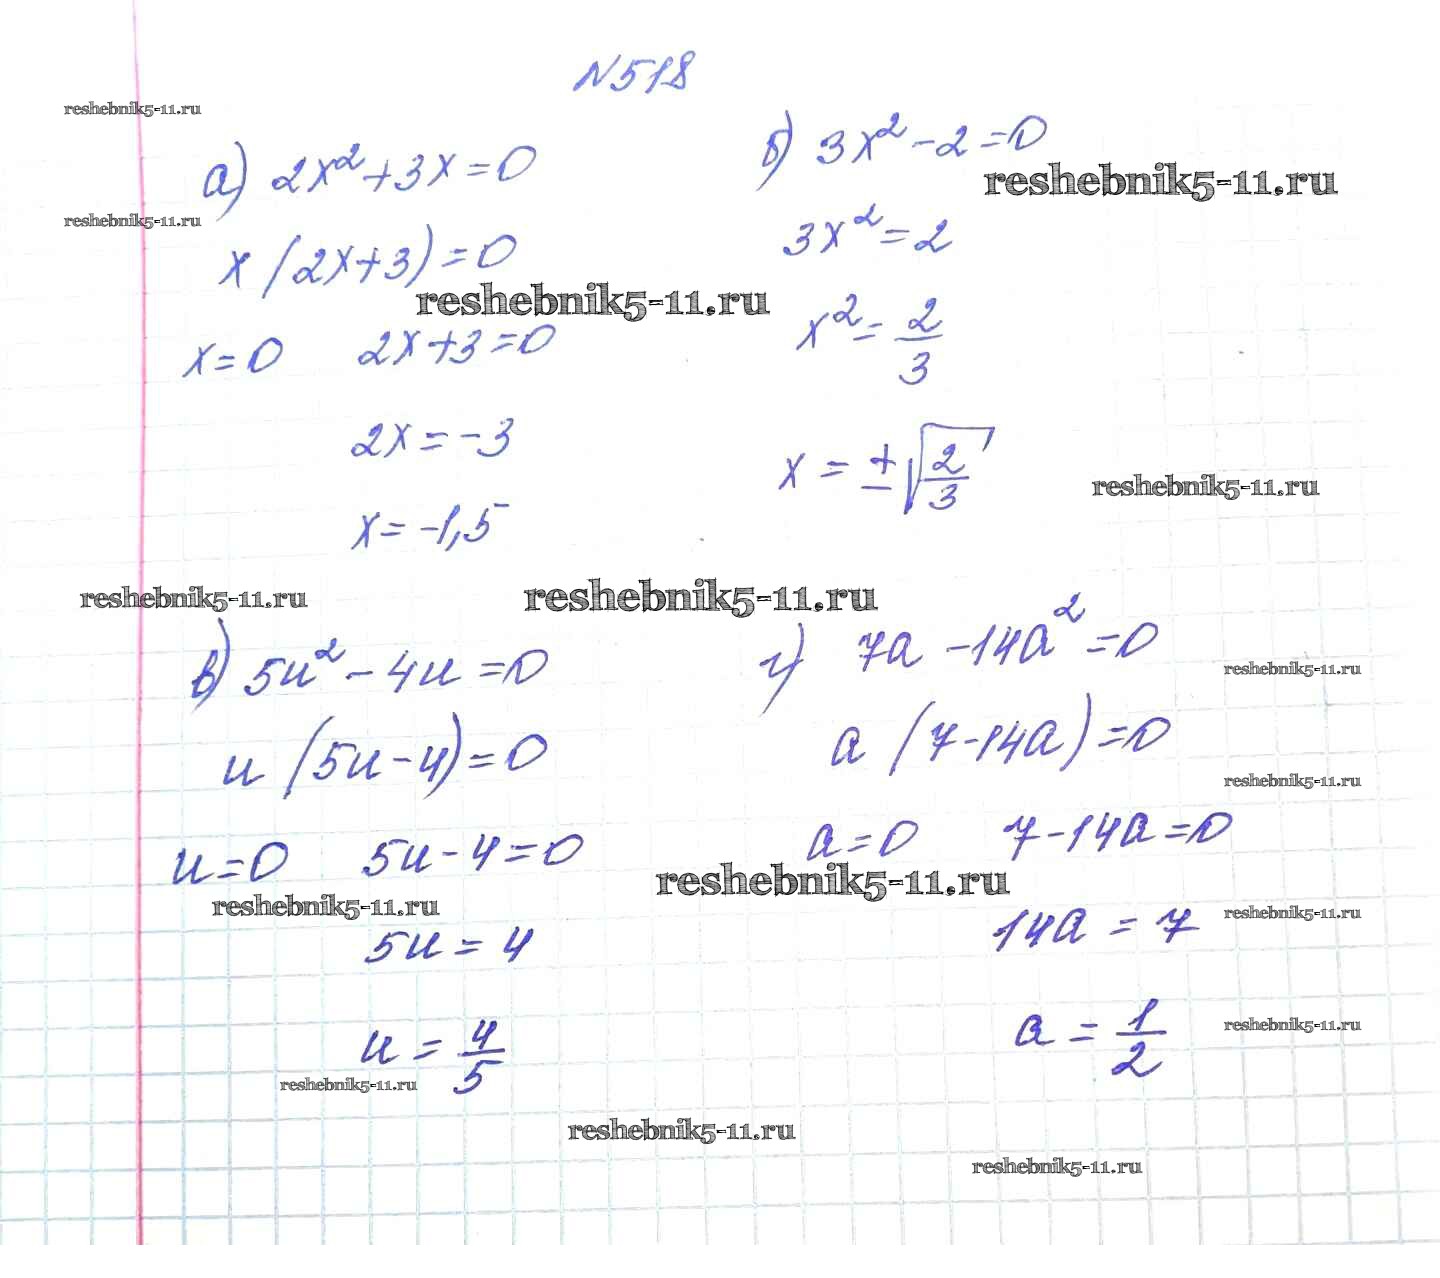 N518
reshebnik5-11.ru
а) 2x² + 3x = 0
reshebnik5-11.ru
x (2x+3) = 0
reshebnik5-11.ru
x = 0   2x+3 = 0
2x = -3
x = -1,5
б) 3x² - 2 = 0
reshebnik5-11.ru
3x² = 2
x² = 2/3
x = ± √(2/3)
reshebnik5-11.ru
reshebnik5-11.ru
reshebnik5-11.ru
в) 5u² - 4u = 0
u (5u - 4) = 0
u = 0   5u - 4 = 0
reshebnik5-11.ru
5u = 4
u = 4/5
reshebnik5-11.ru
г) 7a - 14a² = 0
reshebnik5-11.ru
a (7 - 14a) = 0
reshebnik5-11.ru
a = 0   7 - 14a = 0
reshebnik5-11.ru
14a = 7
reshebnik5-11.ru
a = 1/2
reshebnik5-11.ru
reshebnik5-11.ru
reshebnik5-11.ru